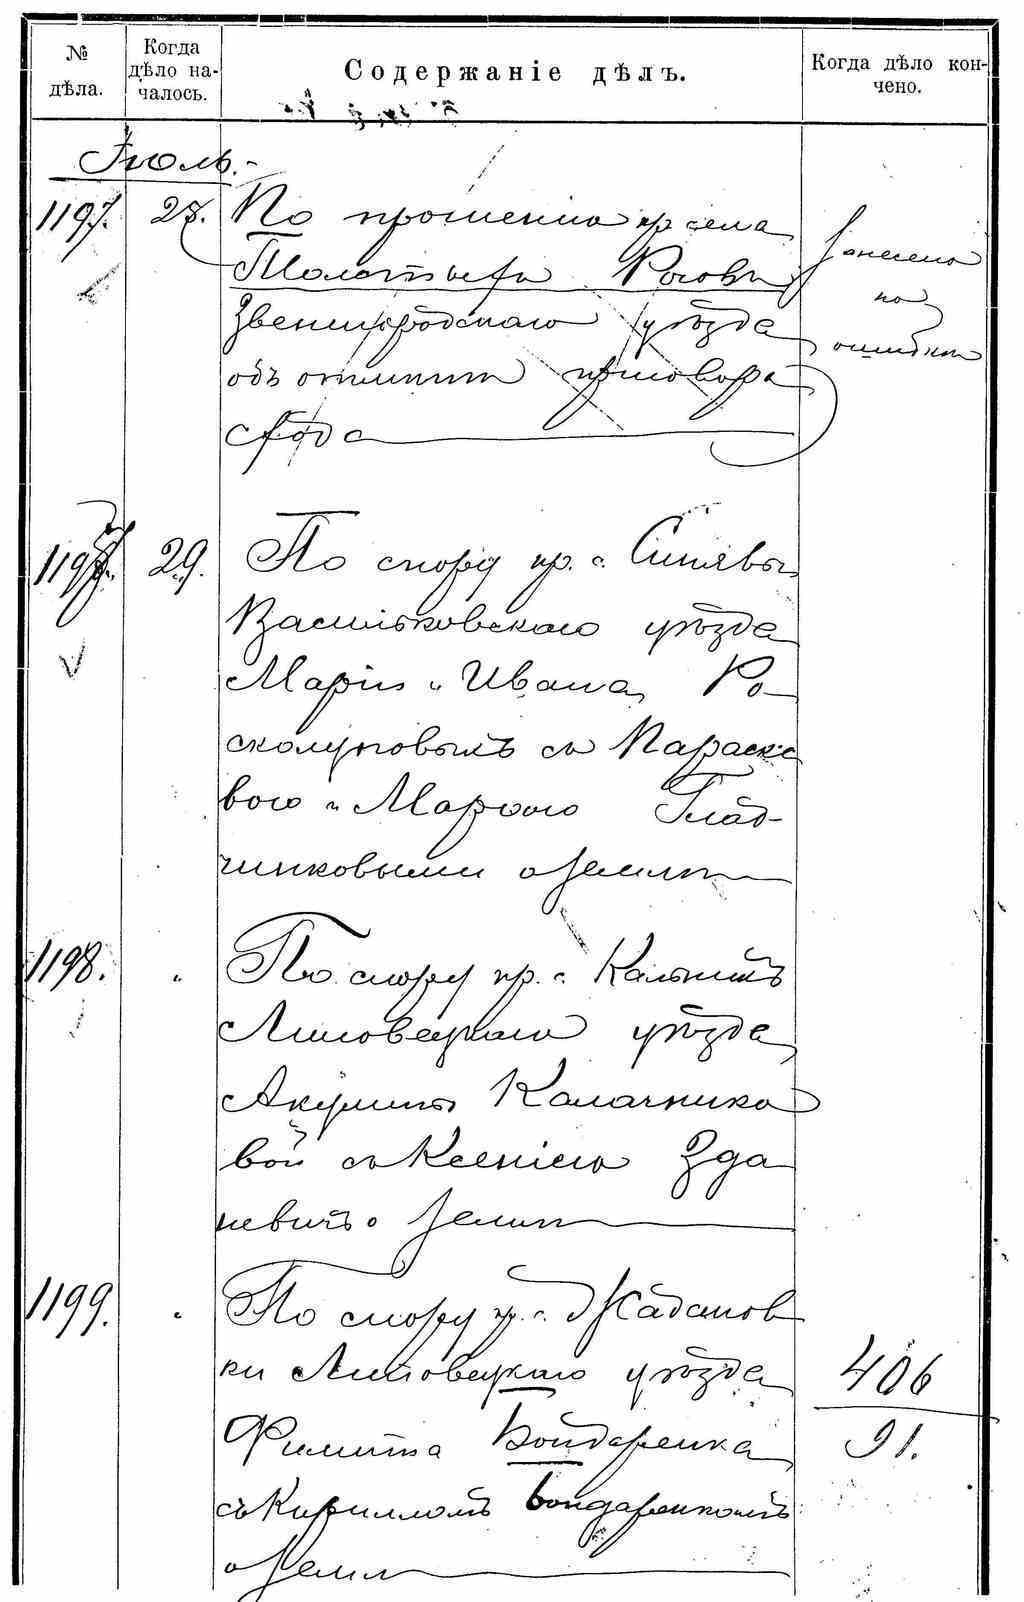 № дѣла.
Когда дѣло на-чалось.
Содержаніе дѣлъ.
Когда дѣло кон-чено.
Іюль.
1197. 28. По прошенію кр. села
Толстыхъ Роговъ
Звенигородскаго уѣзда
объ отмѣнѣ приговора
схода
Занесено
по
ошибкѣ
1197. 29. По спору кр. с. Синявы
Васильковскаго уѣзда
Маріи и Ивана Ро-
сколуповымъ съ Параске
вою и МаріеюГлад-
чинковыми о землѣ
1198. " По спору кр. с. Кальникъ
Липовецкаго уѣзда
Акулины Калачнико
вой съ Ксеніею Зда
невичъ о землѣ
1199. " По спору кр. с. Жаданов
ки Липовецкаго уѣзда
Филиппа Бондаренка
съ Кирилломъ Бондаренкомъ
о землѣ
406
91.